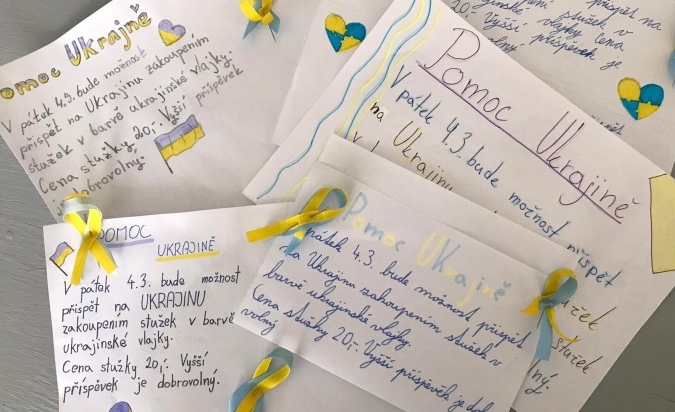 Pomoc Ukrajině
V pátek 4.3. bude možnost
přispět na Ukrajinu zakoupením
stužek v barvě ukrajinské vlajky.
Cena stužky, 20,-. Vyšší příspěvek
je dobrovolný.
přispět na
vlajky Cena
20,- Vyšší příspěvek je
Pomoc Ukrajině
V pátek 4.3. bude možnost přispět
na Ukrajinu
stužek
POMOC UKRAJINĚ
V pátek 4.3. bude možnost
přispět na UKRAJINU
zakoupením stužek v barvě
ukrajinské vlajky.
Cena stužky 20,-. Vyšší
příspěvek je dobrovolný.
Pomoc Ukrajině
pátek 4.3. bude možnost přispět
na Ukrajinu zakoupením stužek v
barvě ukrajinské vlajky.
Cena stužky 20,-. Vyšší příspěvek je dob
volný